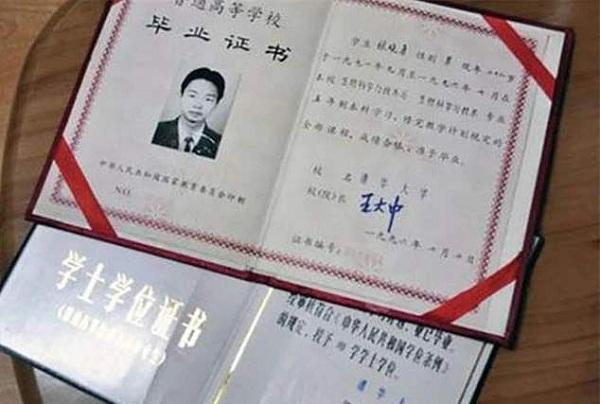 普通高等学校
毕业证书
中华人民共和国国家教育委员会印制
NO.
学生 性别 男 现年
于一九九一年九月至一九九六年七月在
本校 生物科学与技术系 生物科学与技术 专业
五年制本科学习，修完教学计划规定的
全部课程，成绩合格，准予毕业。
校名 清华大学
校(院)长 王大中
一九九六年七月 日
证书编号:
学士学位证书
经审核符合《中华人民共和国学位条例》
的规定，授予 理 学学士学位。
清华大学